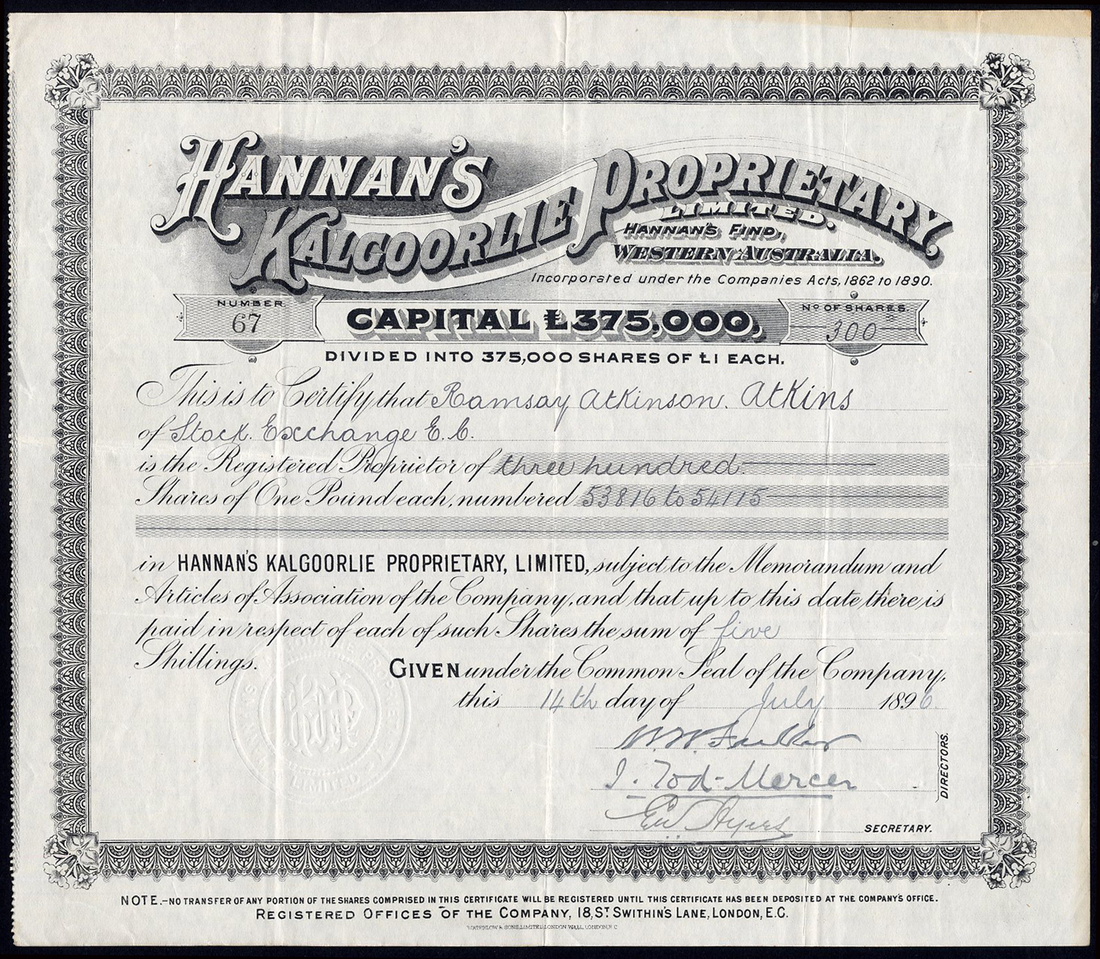 HANNAN'S
KALGOORLIE PROPRIETARY.
LIMITED.
HANNAN'S FIND,
WESTERN AUSTRALIA.
Incorporated under the Companies Acts, 1862 to 1890.
NUMBER
67
CAPITAL £375,000,
Nº OF SHARES.
300
DIVIDED INTO 375,000 SHARES OF £1 EACH.
This is to Certify that Ramsay Atkinson. Atkins
of Stock Exchange E.C.
is the Registered Proprietor of three hundred
Shares of One Pound each, numbered 53816 to 54115
in HANNAN'S KALGOORLIE PROPRIETARY, LIMITED, subject to the Memorandum and
Articles of Association of the Company, and that up to this date there is
paid in respect of each of such Shares the sum of five
Shillings.
GIVEN under the Common Seal of the Company,
this 14th day of July 1896
J. Tod-Mercer
DIRECTORS.
SECRETARY.
NOTE.—NO TRANSFER OF ANY PORTION OF THE SHARES COMPRISED IN THIS CERTIFICATE WILL BE REGISTERED UNTIL THIS CERTIFICATE HAS BEEN DEPOSITED AT THE COMPANY'S OFFICE.
REGISTERED OFFICES OF THE COMPANY, 18, ST SWITHIN'S LANE, LONDON, E.C.
WATERLOW & SONS LIMITED, LONDON WALL, LONDON E C